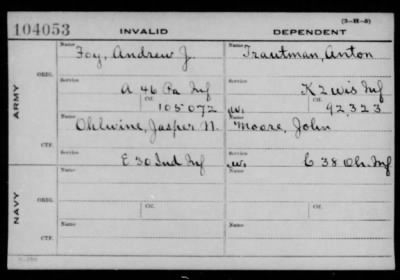 (3-H-5)
104053 INVALID DEPENDENT
Name Foy, Andrew J. Name Trautman, Anton
ARMY
ORIG.
Service Service
A 46 Pa Inf K 2 Wis Inf
Ctf. Ctf.
105072 W. 92,323
Name Ohlwine, Jasper N. Name Moore, John
CTF.
Service Service
E 30 Ind Inf W. C 38 Oh. Inf
NAVY
Name Name
ORIG.
Ctf. Ctf.
Name Name
CTF.